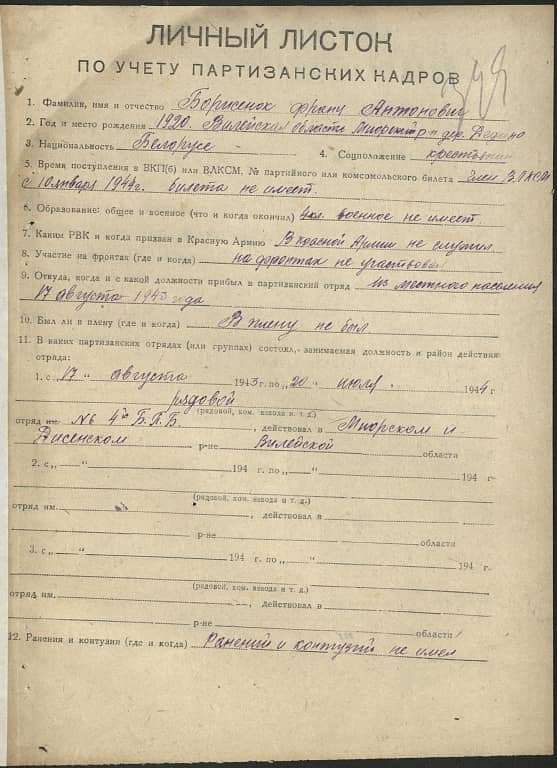 ЛИЧНЫЙ ЛИСТОК
ПО УЧЕТУ ПАРТИЗАНСКИХ КАДРОВ
1. Фамилия, имя и отчество Борисенок Франц Антонович
2. Год и место рождения 1920. Вилейская области Миорский р-н дер. Дедино
3. Национальность Белорус 4. Соцположение крестьянин
5. Время поступления в ВКП(б) или ВЛКСМ, № партийного или комсомольского билета Член ВЛКСМ
с 10 января 1944 г. билета не имеет.
6. Образование: общее и военное (что и когда окончил) 4 кл. военное не имеет.
7. Каким РВК и когда призван в Красную Армию В красной Армии не служил
8. Участие на фронтах (где и когда) на фронтах не участвовал
9. Откуда, когда и с какой должности прибыл в партизанский отряд из местного населения
17 августа 1943 года
10. Был ли в плену (где и когда) В плену не был
11. В каких партизанских отрядах (или группах) состоял, занимаемая должность и район действия
отряда:
1. с „17“ августа 1943 г. по „20“ июля 1944 г
рядовой
(рядовой, ком. взвода и т. д.)
отряд им. №6 4й Б.П.Б , действовал в Миорском и
Дисенском р-не Вилейской области
2. с „ “ 194 г. по „ “ 194 г
(рядовой, ком. взвода и т. д.)
отряд им. , действовал в
р-не области
3. с „ “ 194 г. по „ “ 194 г.
(рядовой, ком. взвода и т. д.)
отряд им. , действовал в
р-не области
12. Ранения и контузии (где и когда) Ранений и контузий не имел